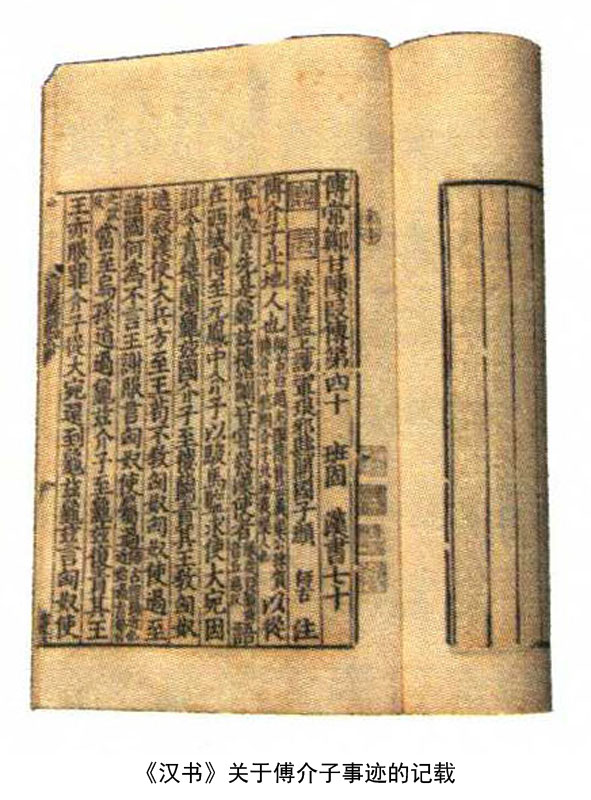 傅常鄭甘陳段傳第四十 班固 漢書七十
秘書監上護軍琅邪縣開國子顏 師古 注
傅介子北地人也 以從
軍爲官先是龜茲樓蘭皆嘗殺漢使者 語
在西域傳至元鳳中介子以駿馬監求使大宛因
詔令責樓蘭龜茲國介子至樓蘭責其王教匈奴
遮殺漢使大兵方至王苟不教匈奴匈奴使過至
諸國何為不言王謝服言匈奴使屬過
當至烏孫道過龜茲介子至龜茲復責其王
王亦服罪介子從大宛還到龜茲龜茲言匈奴使
《汉书》关于傅介子事迹的记载